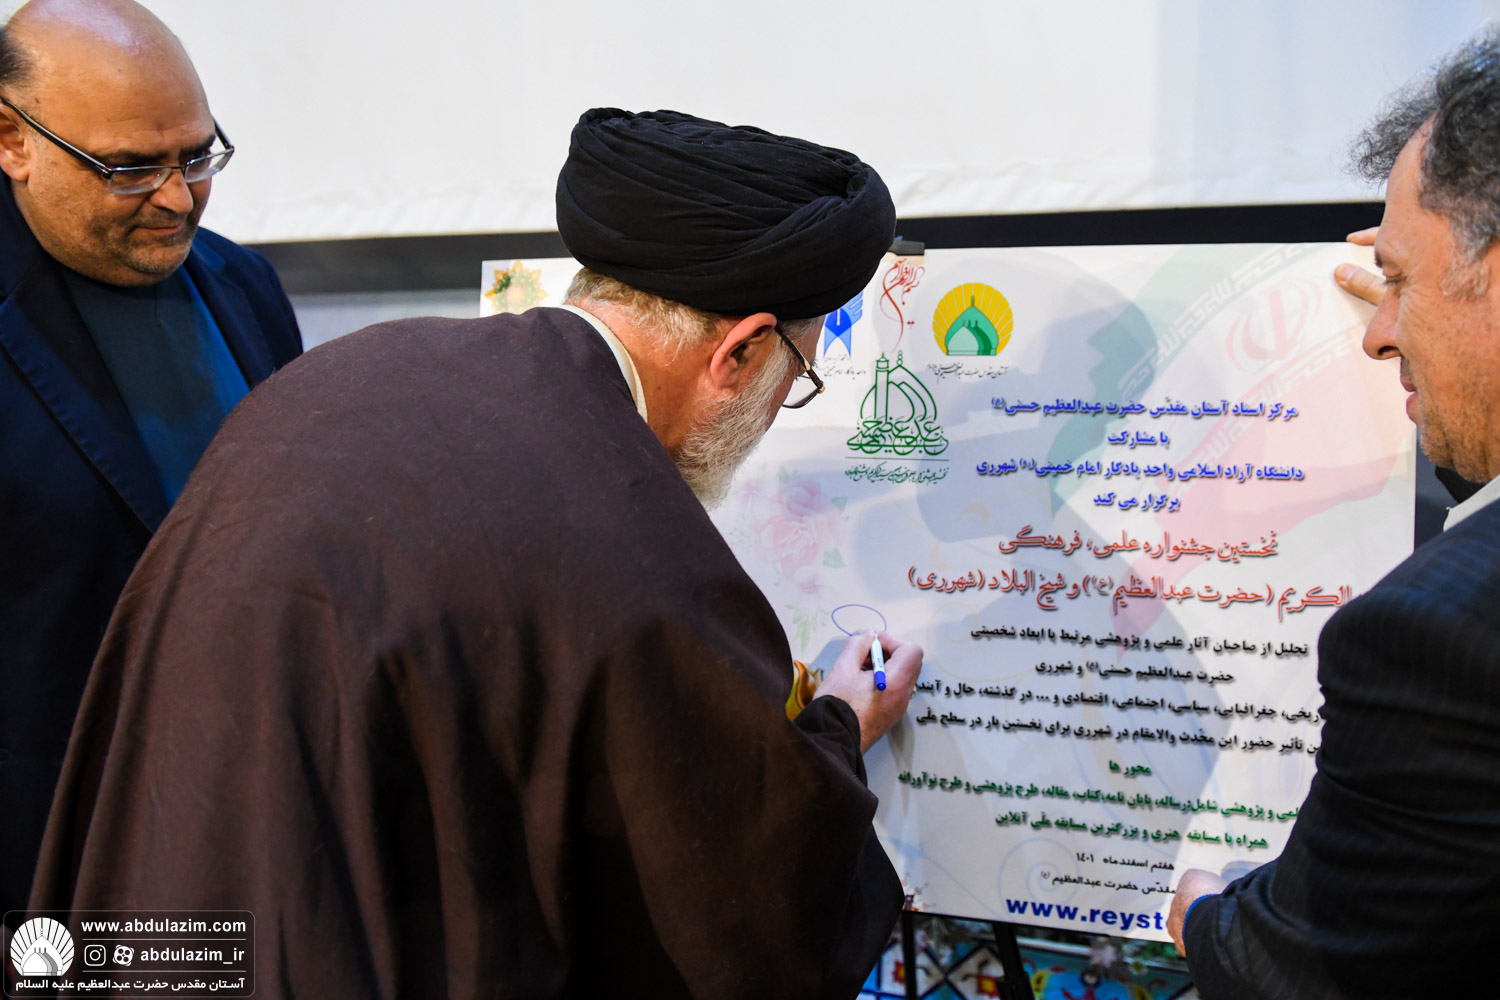 مرکز اسناد آستان مقدّس حضرت عبدالعظیم حسنی(ع)
با مشارکت
دانشگاه آزاد اسلامی واحد یادگار امام خمینی(ره) شهرری
برگزار می کند
نخستین جشنواره علمی، فرهنگی
الکریم (حضرت عبدالعظیم(ع)) و شیخ البلاد (شهرری)
تجلیل از صاحبان آثار علمی و پژوهشی مرتبط با ابعاد شخصیتی
حضرت عبدالعظیم حسنی(ع) و شهرری
ریخی، جغرافیایی، سیاسی، اجتماعی، اقتصادی و ... در گذشته، حال و آینده
ن تأثیر حضور این محّدث والامقام در شهرری برای نخستین بار در سطح ملّی
محور ها
لمی و پژوهشی شامل:رساله، پایان نامه،کتاب، مقاله، طرح پژوهشی و طرح نوآورانه
همراه با مسابقه هنری و بزرگترین مسابقه ملّی آنلاین
هفتم اسفندماه ۱۴۰۱
مقدّس حضرت عبدالعظیم (ع)
www.reyst
www.abdulazim.com
abdulazim_ir
آستان مقدس حضرت عبدالعظیم علیه السلام